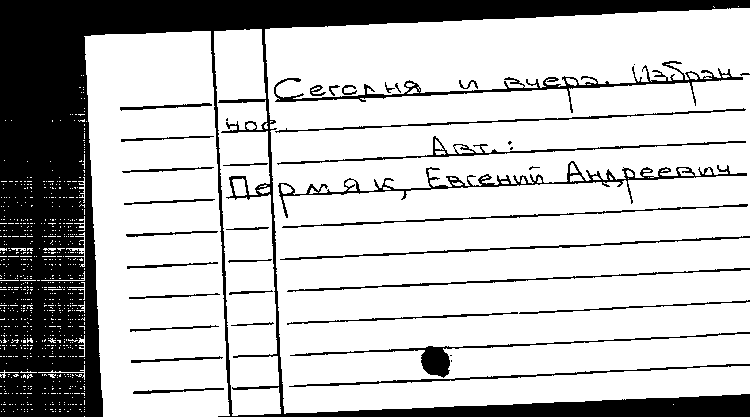 Сегодня и вчера. Избран-
ное
Авт.:
Пермяк, Евгений Андреевич